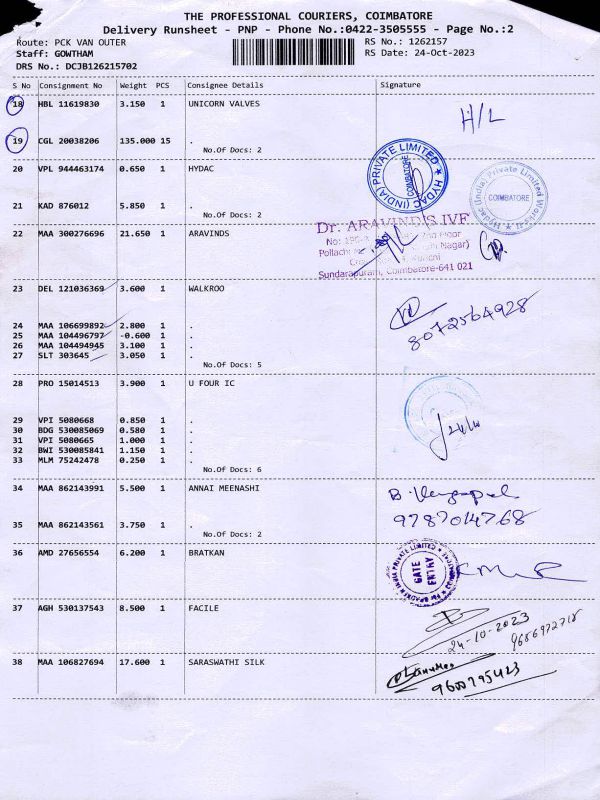 THE PROFESSIONAL COURIERS, COIMBATORE
Delivery Runsheet - PNP - Phone No.:0422-3505555 - Page No.:2
Route: PCK VAN OUTER
RS No.: 1262157
Staff: GOWTHAM
RS Date: 24-Oct-2023
DRS No.: DCJB126215702
S No Consignment No Weight PCS Consignee Details Signature
18 HBL 11619830 3.150 1 UNICORN VALVES
H/L
19 CGL 20038206 135.000 15 .
No.Of Docs: 2
20 VPL 944463174 0.650 1 HYDAC
HYDAC (INDIA) PRIVATE LIMITED
COIMBATORE
COIMBATORE
21 KAD 876012 5.850 1 .
No.Of Docs: 2
22 MAA 300276696 21.650 1 ARAVINDS
Dr. ARAVIND'S IVF
Sundarapuram, Coimbatore-641 021
23 DEL 121036369 3.600 1 WALKROO
8072564928
24 MAA 106699892 2.800 1 .
25 MAA 104496797 -0.600 1 .
26 MAA 104494945 3.100 1 .
27 SLT 303645 3.050 1 .
No.Of Docs: 5
28 PRO 15014513 3.900 1 U FOUR IC
29 VPI 5080668 0.850 1 .
30 BDG 530085069 0.580 1 .
31 VPI 5080665 1.000 1 .
32 BWI 530085841 1.150 1 .
33 MLM 75242478 0.250 1 .
No.Of Docs: 6
34 MAA 862143991 5.500 1 ANNAI MEENASHI
9787014768
35 MAA 862143561 3.750 1 .
No.Of Docs: 2
36 AMD 27656554 6.200 1 BRATKAN
GATE
ENTRY
37 AGH 530137543 8.500 1 FACILE
24-10-2023
38 MAA 106827694 17.600 1 SARASWATHI SILK